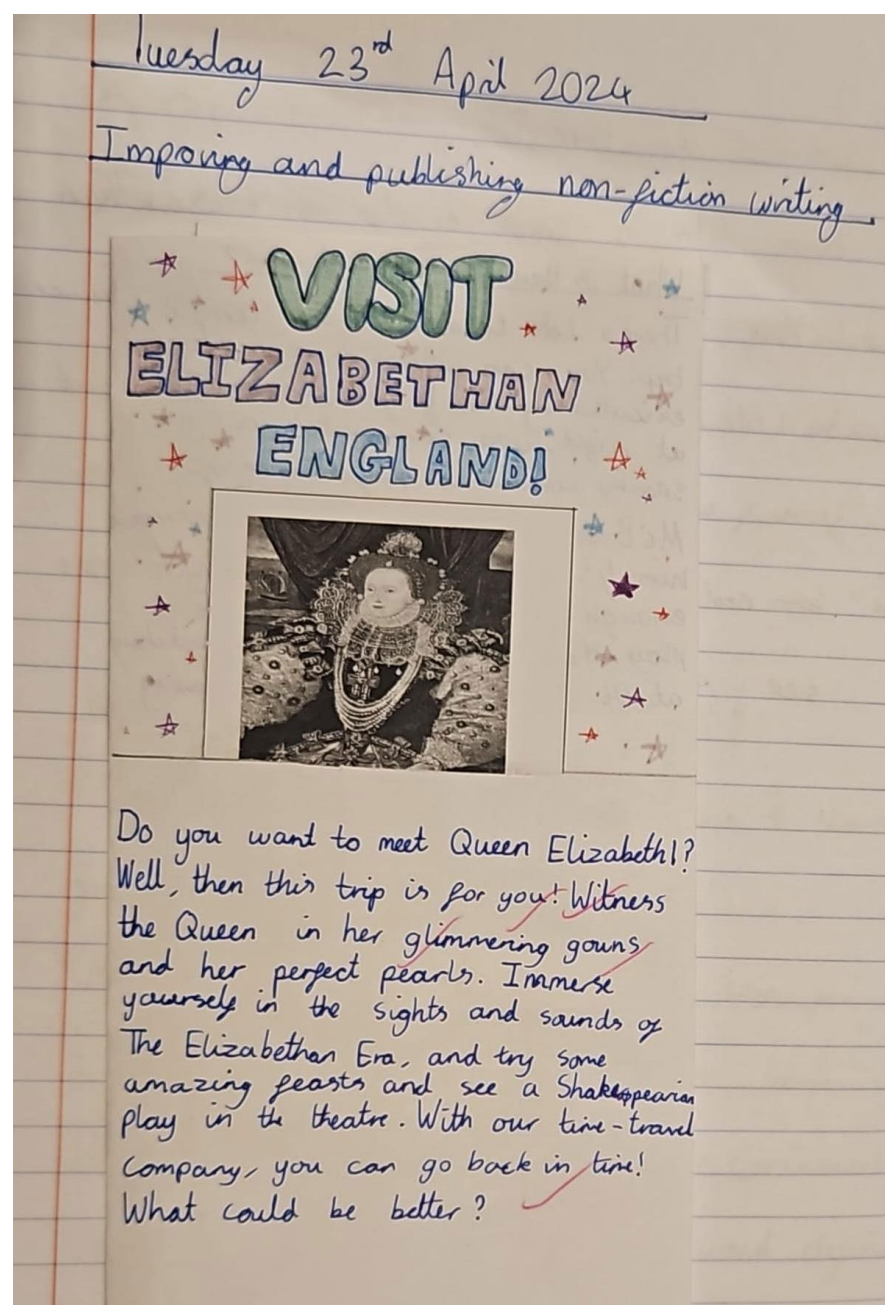 Tuesday 23rd April 2024
Impoving and publishing non-fiction writing.
VISIT
ELIZABETHAN
ENGLAND!
Do you want to meet Queen Elizabeth I?
Well, then this trip is for you! Witness
the Queen in her glimmering gowns
and her perfect pearls. Immerse
yourself in the sights and sounds of
The Elizabethan Era, and try some
amazing feasts and see a Shakesppearian
play in the theatre. With our time-travel
company, you can go back in time!
What could be better?